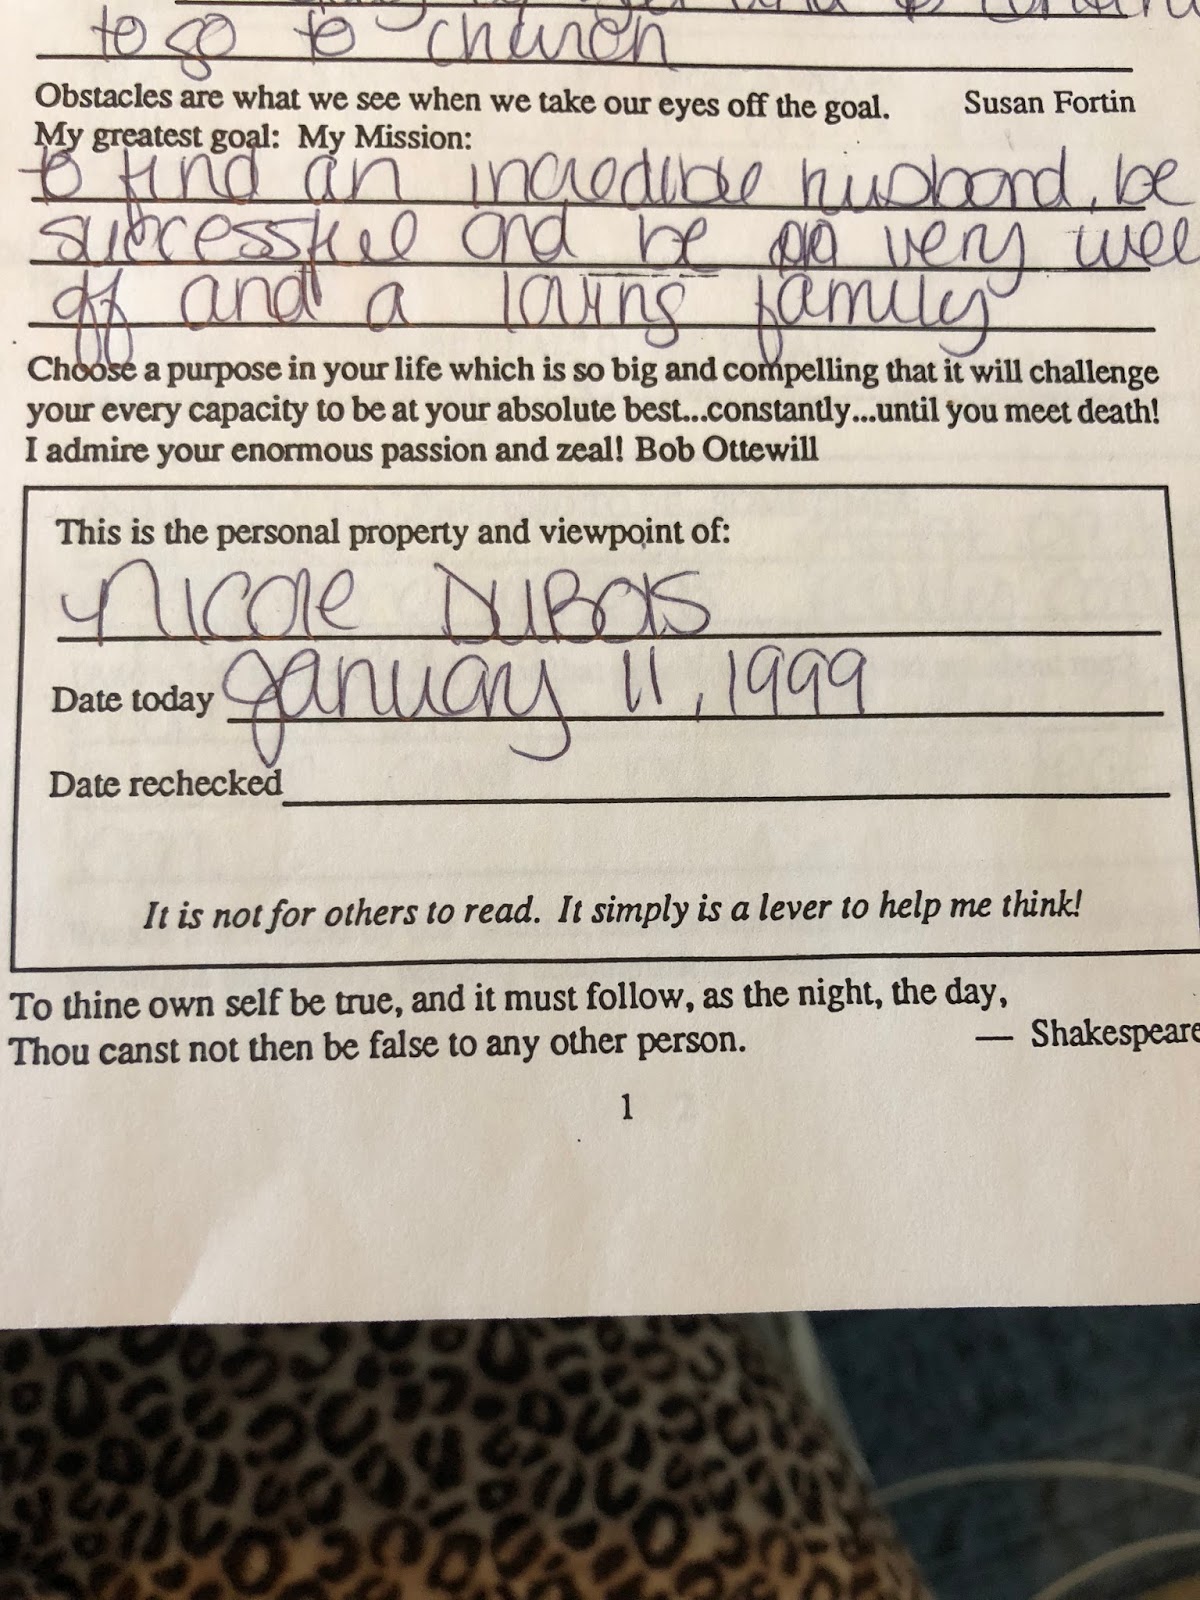 to go to church
Obstacles are what we see when we take our eyes off the goal. Susan Fortin
My greatest goal: My Mission:
to find an incredible husband, be
successful and be very well
off and a loving family
Choose a purpose in your life which is so big and compelling that it will challenge
your every capacity to be at your absolute best...constantly...until you meet death!
I admire your enormous passion and zeal! Bob Ottewill
This is the personal property and viewpoint of:
Nicole DuBois
Date today January 11, 1999
Date rechecked
It is not for others to read. It simply is a lever to help me think!
To thine own self be true, and it must follow, as the night, the day,
Thou canst not then be false to any other person. — Shakespeare
1